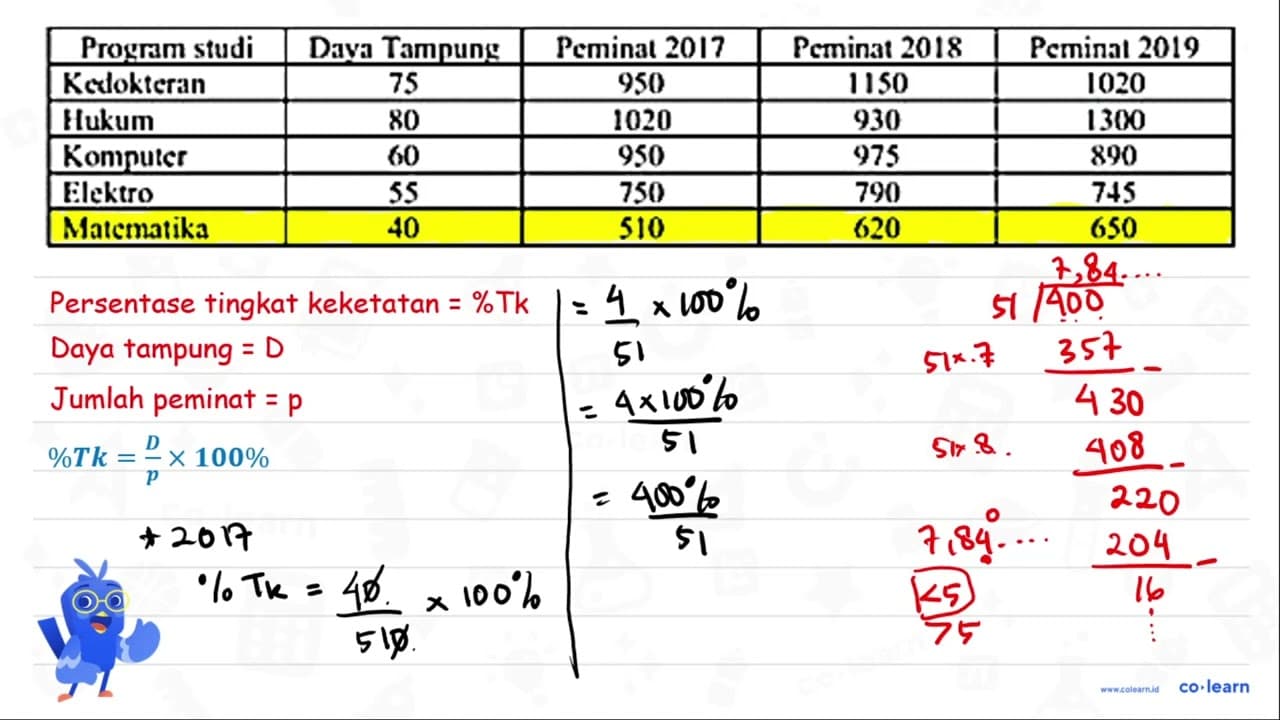 Program studi Daya Tampung Peminat 2017 Peminat 2018 Peminat 2019
Kedokteran 75 950 1150 1020
Hukum 80 1020 930 1300
Komputer 60 950 975 890
Elektro 55 750 790 745
Matematika 40 510 620 650
Persentase tingkat keketatan = %Tk
Daya tampung = D
Jumlah peminat = p
%Tk = D/p × 100%
* 2017
% Tk = 40/510 × 100%
= 4/51 × 100%
= 4 × 100%/51
= 400%/51
7,84....
51 / 400
51 × 7 357 -
430
51 × 8. 408 -
220
204 -
16
7,84....
<5
75
www.colearn.id co·learn